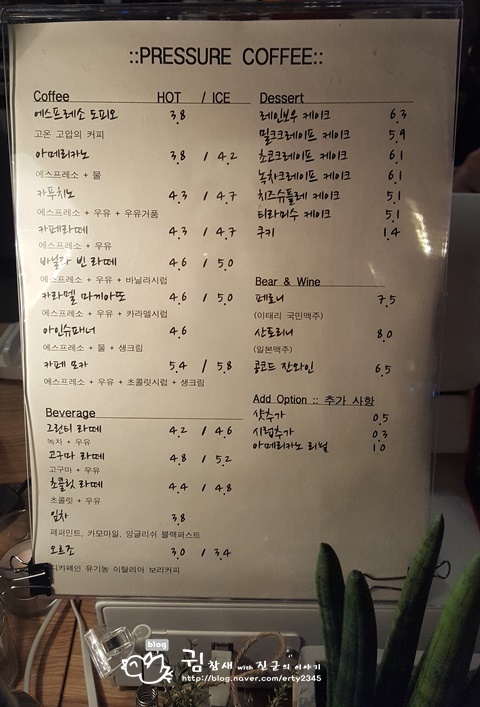 ::PRESSURE COFFEE::
Coffee HOT / ICE
에스프레소 도피오 3.8
고온 고압의 커피
아메리카노 3.8 / 4.2
에스프레소 + 물
카푸치노 4.3 / 4.7
에스프레소 + 우유 + 우유거품
카페라떼 4.3 / 4.7
에스프레소 + 우유
바닐라 빈 라떼 4.6 / 5.0
에스프레소 + 우유 + 바닐라시럽
카라멜 마끼아또 4.6 / 5.0
에스프레소 + 우유 + 카라멜시럽
아인슈패너 4.6
에스프레소 + 물 + 생크림
카페 모카 5.4 / 5.8
에스프레소 + 우유 + 초콜릿시럽 + 생크림
Beverage
그린티 라떼 4.2 / 4.6
녹차 + 우유
고구마 라떼 4.8 / 5.2
고구마 + 우유
초콜릿 라떼 4.4 / 4.8
초콜릿 + 우유
잎차 3.8
페퍼민트, 카모마일, 잉글리쉬 블랙퍼스트
오르조 3.0 / 3.4
디카페인 유기농 이탈리아 보리커피
Dessert
레인보우 케이크 6.3
밀크크레이프 케이크 5.9
초코크레이프 케이크 6.1
녹차크레이프 케이크 6.1
치즈수플레 케이크 5.1
티라미수 케이크 5.1
쿠키 1.4
Bear & Wine
페로니 7.5
(이태리 국민맥주)
산토리니 8.0
(일본맥주)
콩코드 잔와인 6.5
Add Option :: 추가 사항
샷추가 0.5
시럽추가 0.3
아메리카노 리필 1.0
blog
귐 참새 with 진군의 이야기
http://blog.naver.com/erty2345